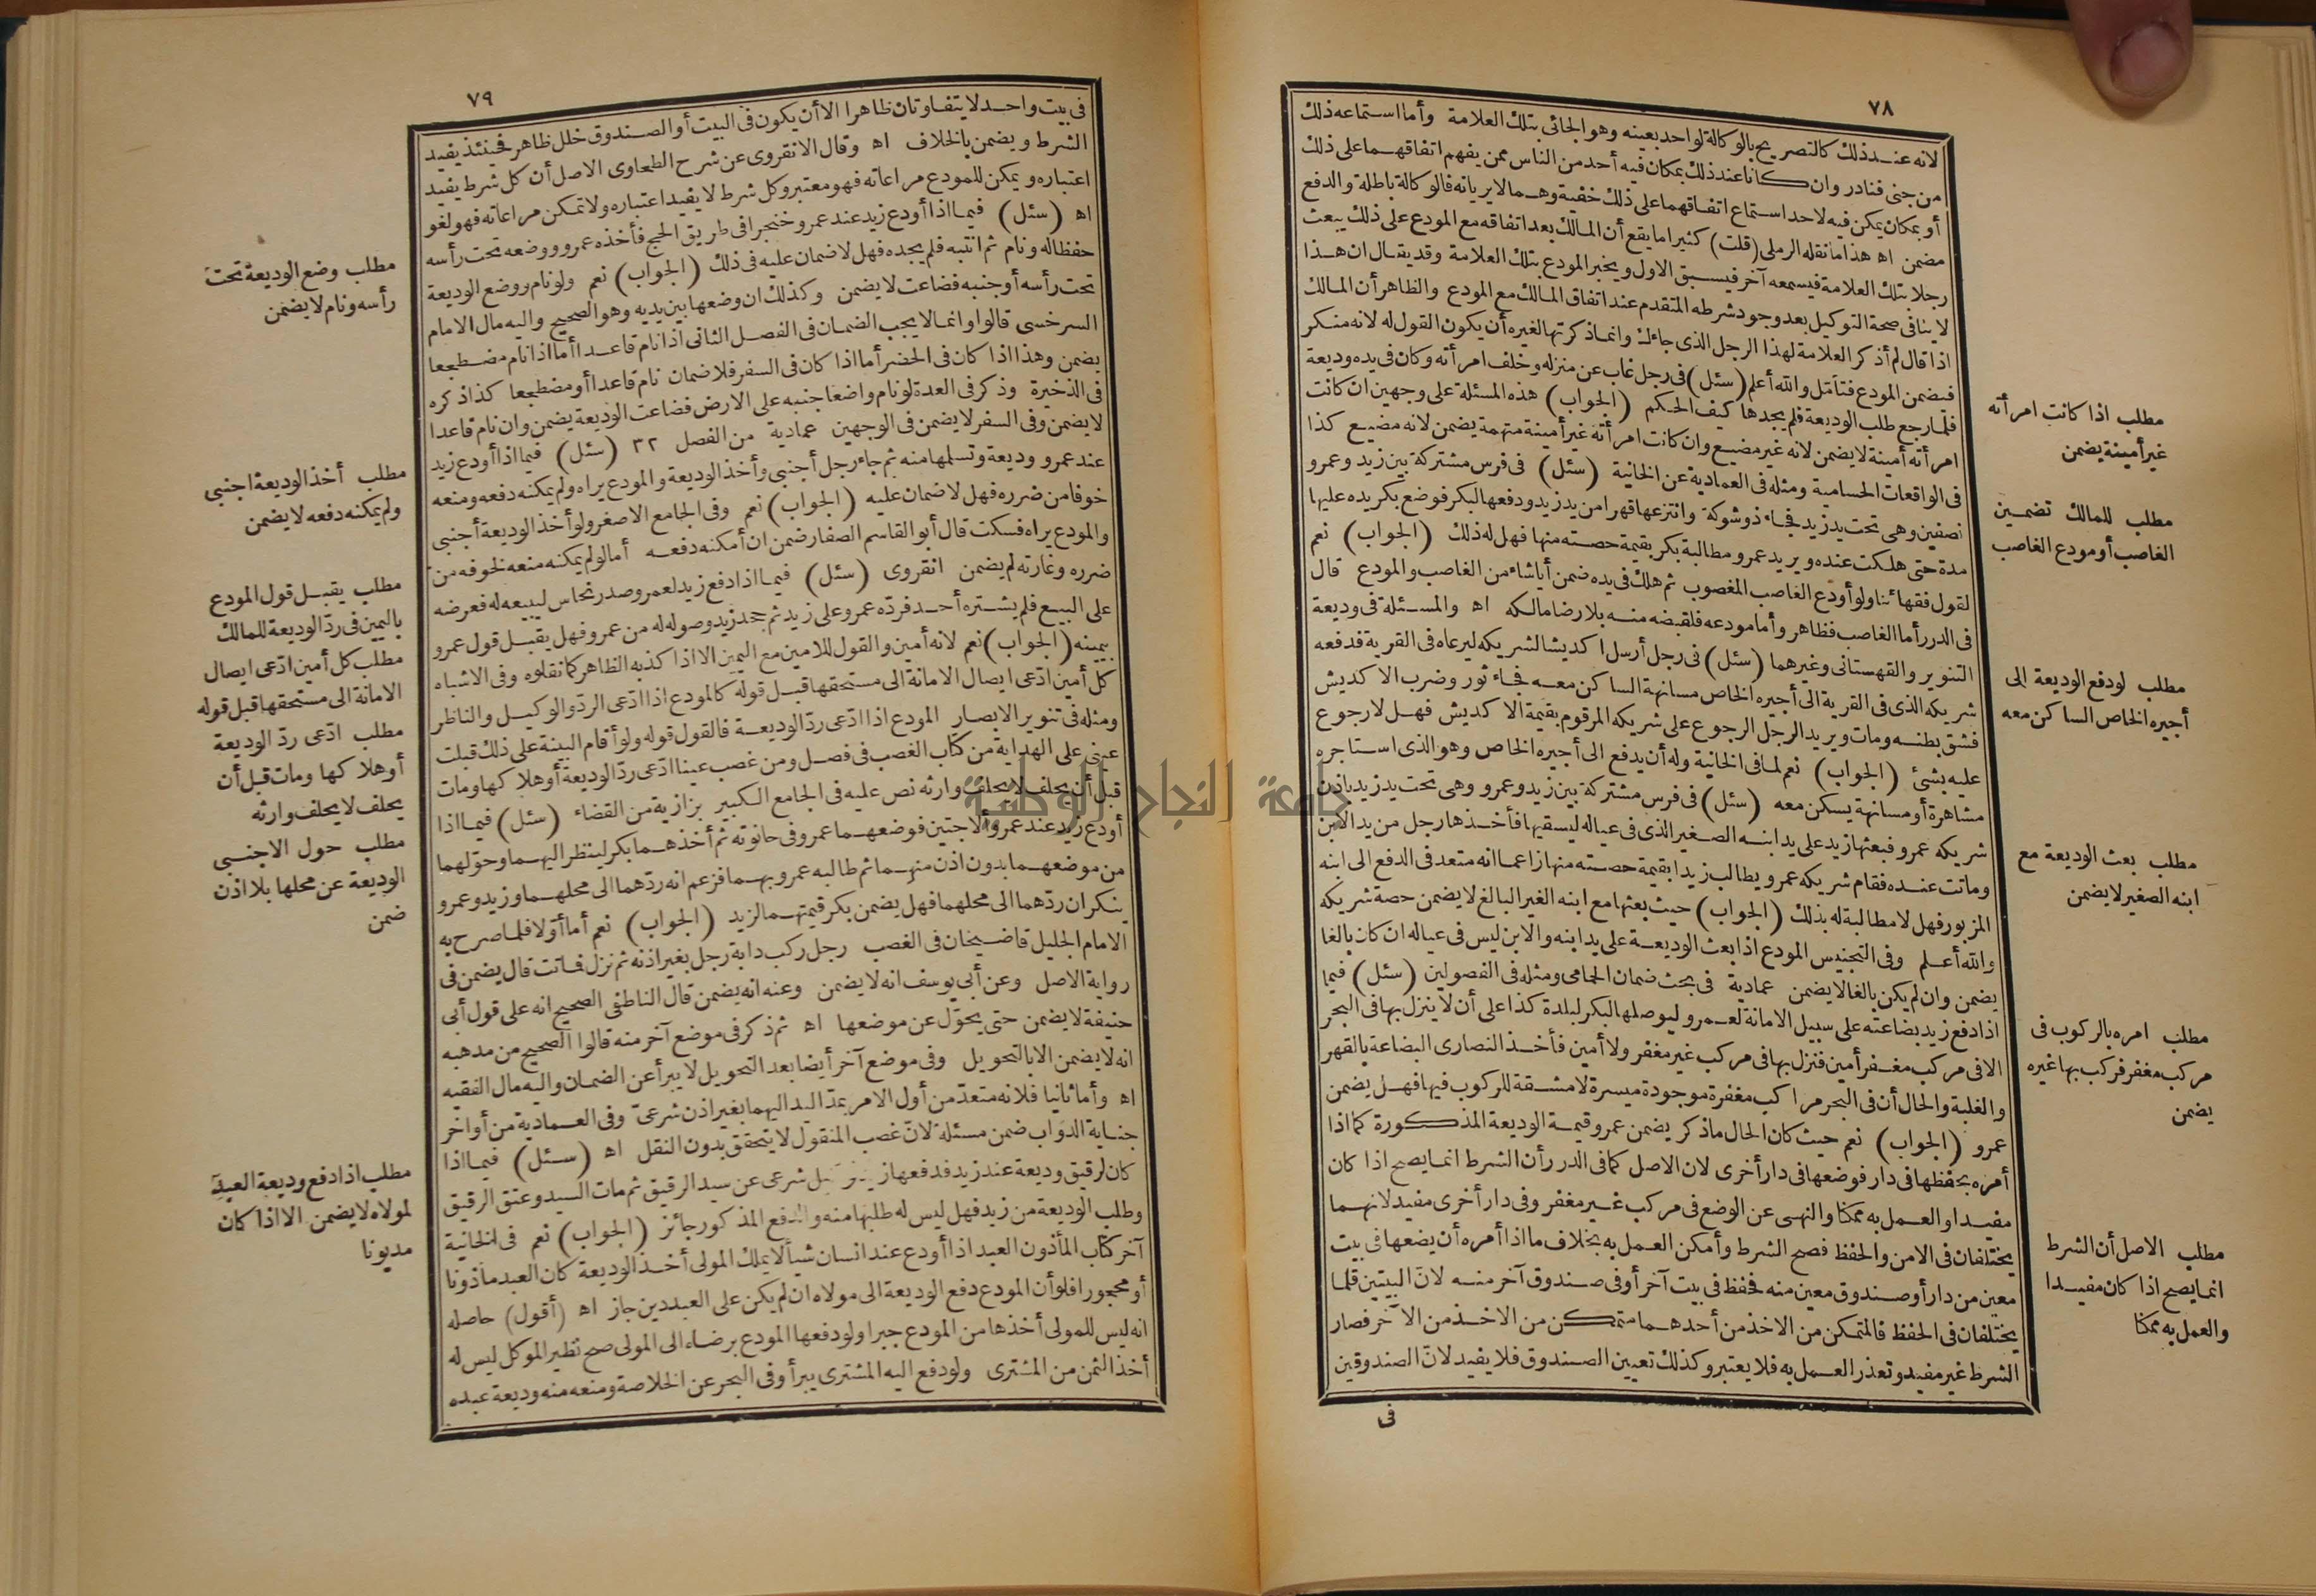 ٧٨
لانه عند ذلك كالتصريح بالوكالة لواحد بعينه وهو الجائى بتلك العلامة وأما استماعه ذلك
من جنى فنادر وان كانا عند ذلك بمكان فيه أحد من الناس ممن يفهم اتفاقهما على ذلك
أو بمكان يمكن فيه لاحد استماع اتفاقهما على ذلك خفية وهما لا يريانه فالوكالة باطلة والدفع
مضمن اه هذا ما نقله الرملى (قلت) كثيرا ما يقع أن المالك بعد اتفاقه مع المودع على ذلك يبعث
رجلا بتلك العلامة فيسمعه آخر فيسبق الاول ويخبر المودع بتلك العلامة وقد يقال ان هذا
لا ينافى صحة التوكيل بعد وجود شرطه المتقدم عند اتفاق المالك مع المودع والظاهر أن المالك
اذا قال لم أذكر العلامة لهذا الرجل الذى جاءك وانما ذكرتها لغيره أن يكون القول له لانه منكر
فيضمن المودع فتأمل والله أعلم (سئل) فى رجل غاب عن منزله وخلف امرأته وكان فى يده وديعة
فلما رجع طلب الوديعة فلم يجدها كيف الحكم (الجواب) هذه المسئلة على وجهين ان كانت
امرأته أمينة لا يضمن لانه غير مضيع وان كانت امرأته غير أمينة متهمة يضمن لانه مضيع كذا
فى الواقعات الحسامية ومثله فى العمادية عن الخانية (سئل) فى فرس مشتركة بين زيد وعمرو
نصفين وهى تحت يد زيد فجاء ذو شوكة وانتزعها قهرا من يد زيد ودفعها لبكر فوضع بكر يده عليها
مدة حتى هلكت عنده ويريد عمرو مطالبة بكر بقيمة حصته منها فهل له ذلك (الجواب) نعم
لقول فقهائنا ولو أودع الغاصب المغصوب ثم هلك فى يده ضمن أيا شاء من الغاصب والمودع قال
فى الدرر أما الغاصب فظاهر وأما مودعه فلقبضه منه بلا رضا مالكه اه والمسئلة فى وديعة
التنوير والقهستانى وغيرهما (سئل) فى رجل أرسل اكديشا لشريكه ليرعاه فى القرية فدفعه
شريكه الذى فى القرية الى أجيره الخاص مسانهة الساكن معه فجاء ثور وضرب الاكديش
فشق بطنه ومات ويريد الرجل الرجوع على شريكه المرقوم بقيمة الاكديش فهل لا رجوع
عليه بشئ (الجواب) نعم لما فى الخانية وله أن يدفع الى أجيره الخاص وهو الذى استأجره
مشاهرة أو مسانهة يسكن معه (سئل) فى فرس مشتركة بين زيد وعمرو وهى تحت يد زيد باذن
شريكه عمرو فبعثها زيد على يد ابنه الصغير الذى فى عياله ليسقيها فأخذها رجل من يد الابن
وماتت عنده فقام شريكه عمرو يطالب زيدا بقيمة حصته منها زاعما انه متعد فى الدفع الى ابنه
المزبور فهل لا مطالبة له بذلك (الجواب) حيث بعثها مع ابنه الغير البالغ لا يضمن حصة شريكه
والله أعلم وفى التجنيس المودع اذا بعث الوديعة على يد ابنه والابن ليس فى عياله ان كان بالغا
يضمن وان لم يكن بالغا لا يضمن عمادية فى بحث ضمان الحامى ومثله فى الفصولين (سئل) فيما
اذا دفع زيد بضاعته على سبيل الامانة لعمرو ليوصلها لبكر لبلدة كذا على أن لا ينزل بها فى البحر
الا فى مركب مغفر أمين فنزل بها فى مركب غير مغفر ولا أمين فأخذ النصارى البضاعة بالقهر
والغلبة والحال أن فى البحر مراكب مغفرة موجودة ميسرة لا مشقة للركوب فيها فهل يضمن
عمرو (الجواب) نعم حيث كان الحال ما ذكر يضمن عمرو قيمة الوديعة المذكورة كما اذا
أمره بحفظها فى دار فوضعها فى دار أخرى لان الاصل كما فى الدرر أن الشرط انما يصح اذا كان
مفيدا والعمل به ممكنا والنهى عن الوضع فى مركب غير مغفر وفى دار أخرى مفيد لانهما
يختلفان فى الامن والحفظ فصح الشرط وأمكن العمل به بخلاف ما اذا أمره أن يضعها فى بيت
معين من دار أو صندوق معين منه فحفظ فى بيت آخر أو فى صندوق آخر منه لان البيتين قلما
يختلفان فى الحفظ فالمتمكن من الاخذ من أحدهما متمكن من الاخذ من الآخر فصار
الشرط غير مفيد وتعذر العمل به فلا يعتبر وكذلك تعيين الصندوق فلا يفيد لان الصندوقين
فى
مطلب اذا كانت امرأته
غير أمينة يضمن
مطلب للمالك تضمين
الغاصب أو مودع الغاصب
مطلب لو دفع الوديعة الى
أجيره الخاص الساكن معه
مطلب بعث الوديعة مع
ابنه الصغير لا يضمن
مطلب امره بالركوب فى
مركب مغفر فركب بها غيره
يضمن
مطلب الاصل أن الشرط
انما يصح اذا كان مفيدا
والعمل به ممكنا
٧٩
فى بيت واحد لا يتفاوتان ظاهرا الا أن يكون فى البيت أو الصندوق خلل ظاهر فحينئذ يفيد
الشرط ويضمن بالخلاف اه وقال الانقروى عن شرح الطحاوى الاصل أن كل شرط يفيد
اعتباره ويمكن للمودع مراعاته فهو معتبر وكل شرط لا يفيد اعتباره ولا تمكن مراعاته فهو لغو
اه (سئل) فيما اذا أودع زيد عند عمرو خنجرا فى طريق الحج فأخذه عمرو ووضعه تحت رأسه
حفظا له ونام ثم انتبه فلم يجده فهل لا ضمان عليه فى ذلك (الجواب) نعم ولو نام ووضع الوديعة
تحت رأسه أو جنبه فضاعت لا يضمن وكذلك ان وضعها بين يديه وهو الصحيح واليه مال الامام
السرخسى قالوا وانما لا يجب الضمان فى الفصل الثانى اذا نام قاعدا أما اذا نام مضطجعا
يضمن وهذا اذا كان فى الحضر أما اذا كان فى السفر فلا ضمان نام قاعدا أو مضطجعا كذا ذكره
فى الذخيرة وذكر فى العدة لو نام واضعا جنبه على الارض فضاعت الوديعة يضمن وان نام قاعدا
لا يضمن وفى السفر لا يضمن فى الوجهين عمادية من الفصل ٣٢ (سئل) فيما اذا أودع زيد
عند عمرو وديعة وتسلمها منه ثم جاء رجل أجنبى وأخذ الوديعة والمودع يراه ولم يمكنه دفعه ومنعه
خوفا من ضرره فهل لا ضمان عليه (الجواب) نعم وفى الجامع الاصغر ولو أخذ الوديعة أجنبى
والمودع يراه فسكت قال أبو القاسم الصفار ضمن ان أمكنه دفعه أما لو لم يمكنه منعه لخوفه من
ضرره وغارته لم يضمن انقروى (سئل) فيما اذا دفع زيد لعمرو صدر نحاس ليبيعه له فعرضه
على البيع فلم يشتره أحد فرده عمرو على زيد ثم جحد زيد وصوله له من عمرو فهل يقبل قول عمرو
بيمينه (الجواب) نعم لانه أمين والقول للامين مع اليمين الا اذا كذبه الظاهر كما نقلوه وفى الاشباه
كل أمين ادعى ايصال الامانة الى مستحقها قبل قوله كالمودع اذا ادعى الرد والوكيل والناظر
ومثله فى تنوير الابصار المودع اذا ادعى رد الوديعة فالقول قوله ولو أقام البينة على ذلك قبلت
عينى على الهداية من كتاب الغصب فى فصل ومن غصب عينا ادعى رد الوديعة أو هلاكها ومات
قبل أن يحلف لا يحلف وارثه نص عليه فى الجامع الكبير بزازية من القضاء (سئل) فيما اذا
أودع زيد عند عمرو ألاجتين فوضعهما عمرو فى حانوته ثم أخذهما بكر لينظر اليهما وحولهما
من موضعهما بدون اذن منهما ثم طالبه عمرو بهما فزعم انه ردهما الى محلهما وزيد وعمرو
ينكران ردهما الى محلهما فهل يضمن بكر قيمتهما لزيد (الجواب) نعم أما أولا فلما صرح به
الامام الجليل قاضيخان فى الغصب رجل ركب دابة رجل بغير اذنه ثم نزل فماتت قال يضمن فى
رواية الاصل وعن أبى يوسف انه لا يضمن وعنه انه يضمن قال الناطفى الصحيح انه على قول أبى
حنيفة لا يضمن حتى يحول عن موضعها اه ثم ذكر فى موضع آخر منه قالوا الصحيح من مذهبه
انه لا يضمن الا بالتحويل وفى موضع آخر أيضا بعد التحويل لا يبرأ عن الضمان واليه مال الفقيه
اه وأما ثانيا فلانه متعد من أول الامر بمد اليد اليهما بغير اذن شرعى وفى العمادية من أواخر
جناية الدواب ضمن مسئلة لان غصب المنقول لا يتحقق بدون النقل اه (سئل) فيما اذا
كان لرقيق وديعة عند زيد فدفعها زيد شرعى عن سيد الرقيق ثم مات السيد وعتق الرقيق
وطلب الوديعة من زيد فهل ليس له طلبها منه والدفع المذكور جائز (الجواب) نعم فى الخانية
آخر كتاب المأذون العبد اذا أودع عند انسان شيأ لا يملك المولى أخذ الوديعة كان العبد مأذونا
أو محجورا فلو أن المودع دفع الوديعة الى مولاه ان لم يكن على العبد دين جاز اه (أقول) حاصله
انه ليس للمولى أخذها من المودع جبرا ولو دفعها المودع برضاه الى المولى صح نظير الموكل ليس له
أخذ الثمن من المشترى ولو دفع اليه المشترى يبرأ وفى البحر عن الخلاصة ومنعه منه وديعة عبده
مطلب وضع الوديعة تحت
رأسه ونام لا يضمن
مطلب أخذ الوديعة اجنبى
ولم يمكنه دفعه لا يضمن
مطلب يقبل قول المودع
باليمين فى رد الوديعة للمالك
مطلب كل أمين ادعى ايصال
الامانة الى مستحقها قبل قوله
مطلب ادعى رد الوديعة
أو هلاكها ومات قبل أن
يحلف لا يحلف وارثه
مطلب حول الاجنبى
الوديعة عن محلها بلا اذن
ضمن
مطلب اذا دفع وديعة العبد
لمولاه لا يضمن الا اذا كان
مديونا
جامعة النجاح الوطنية